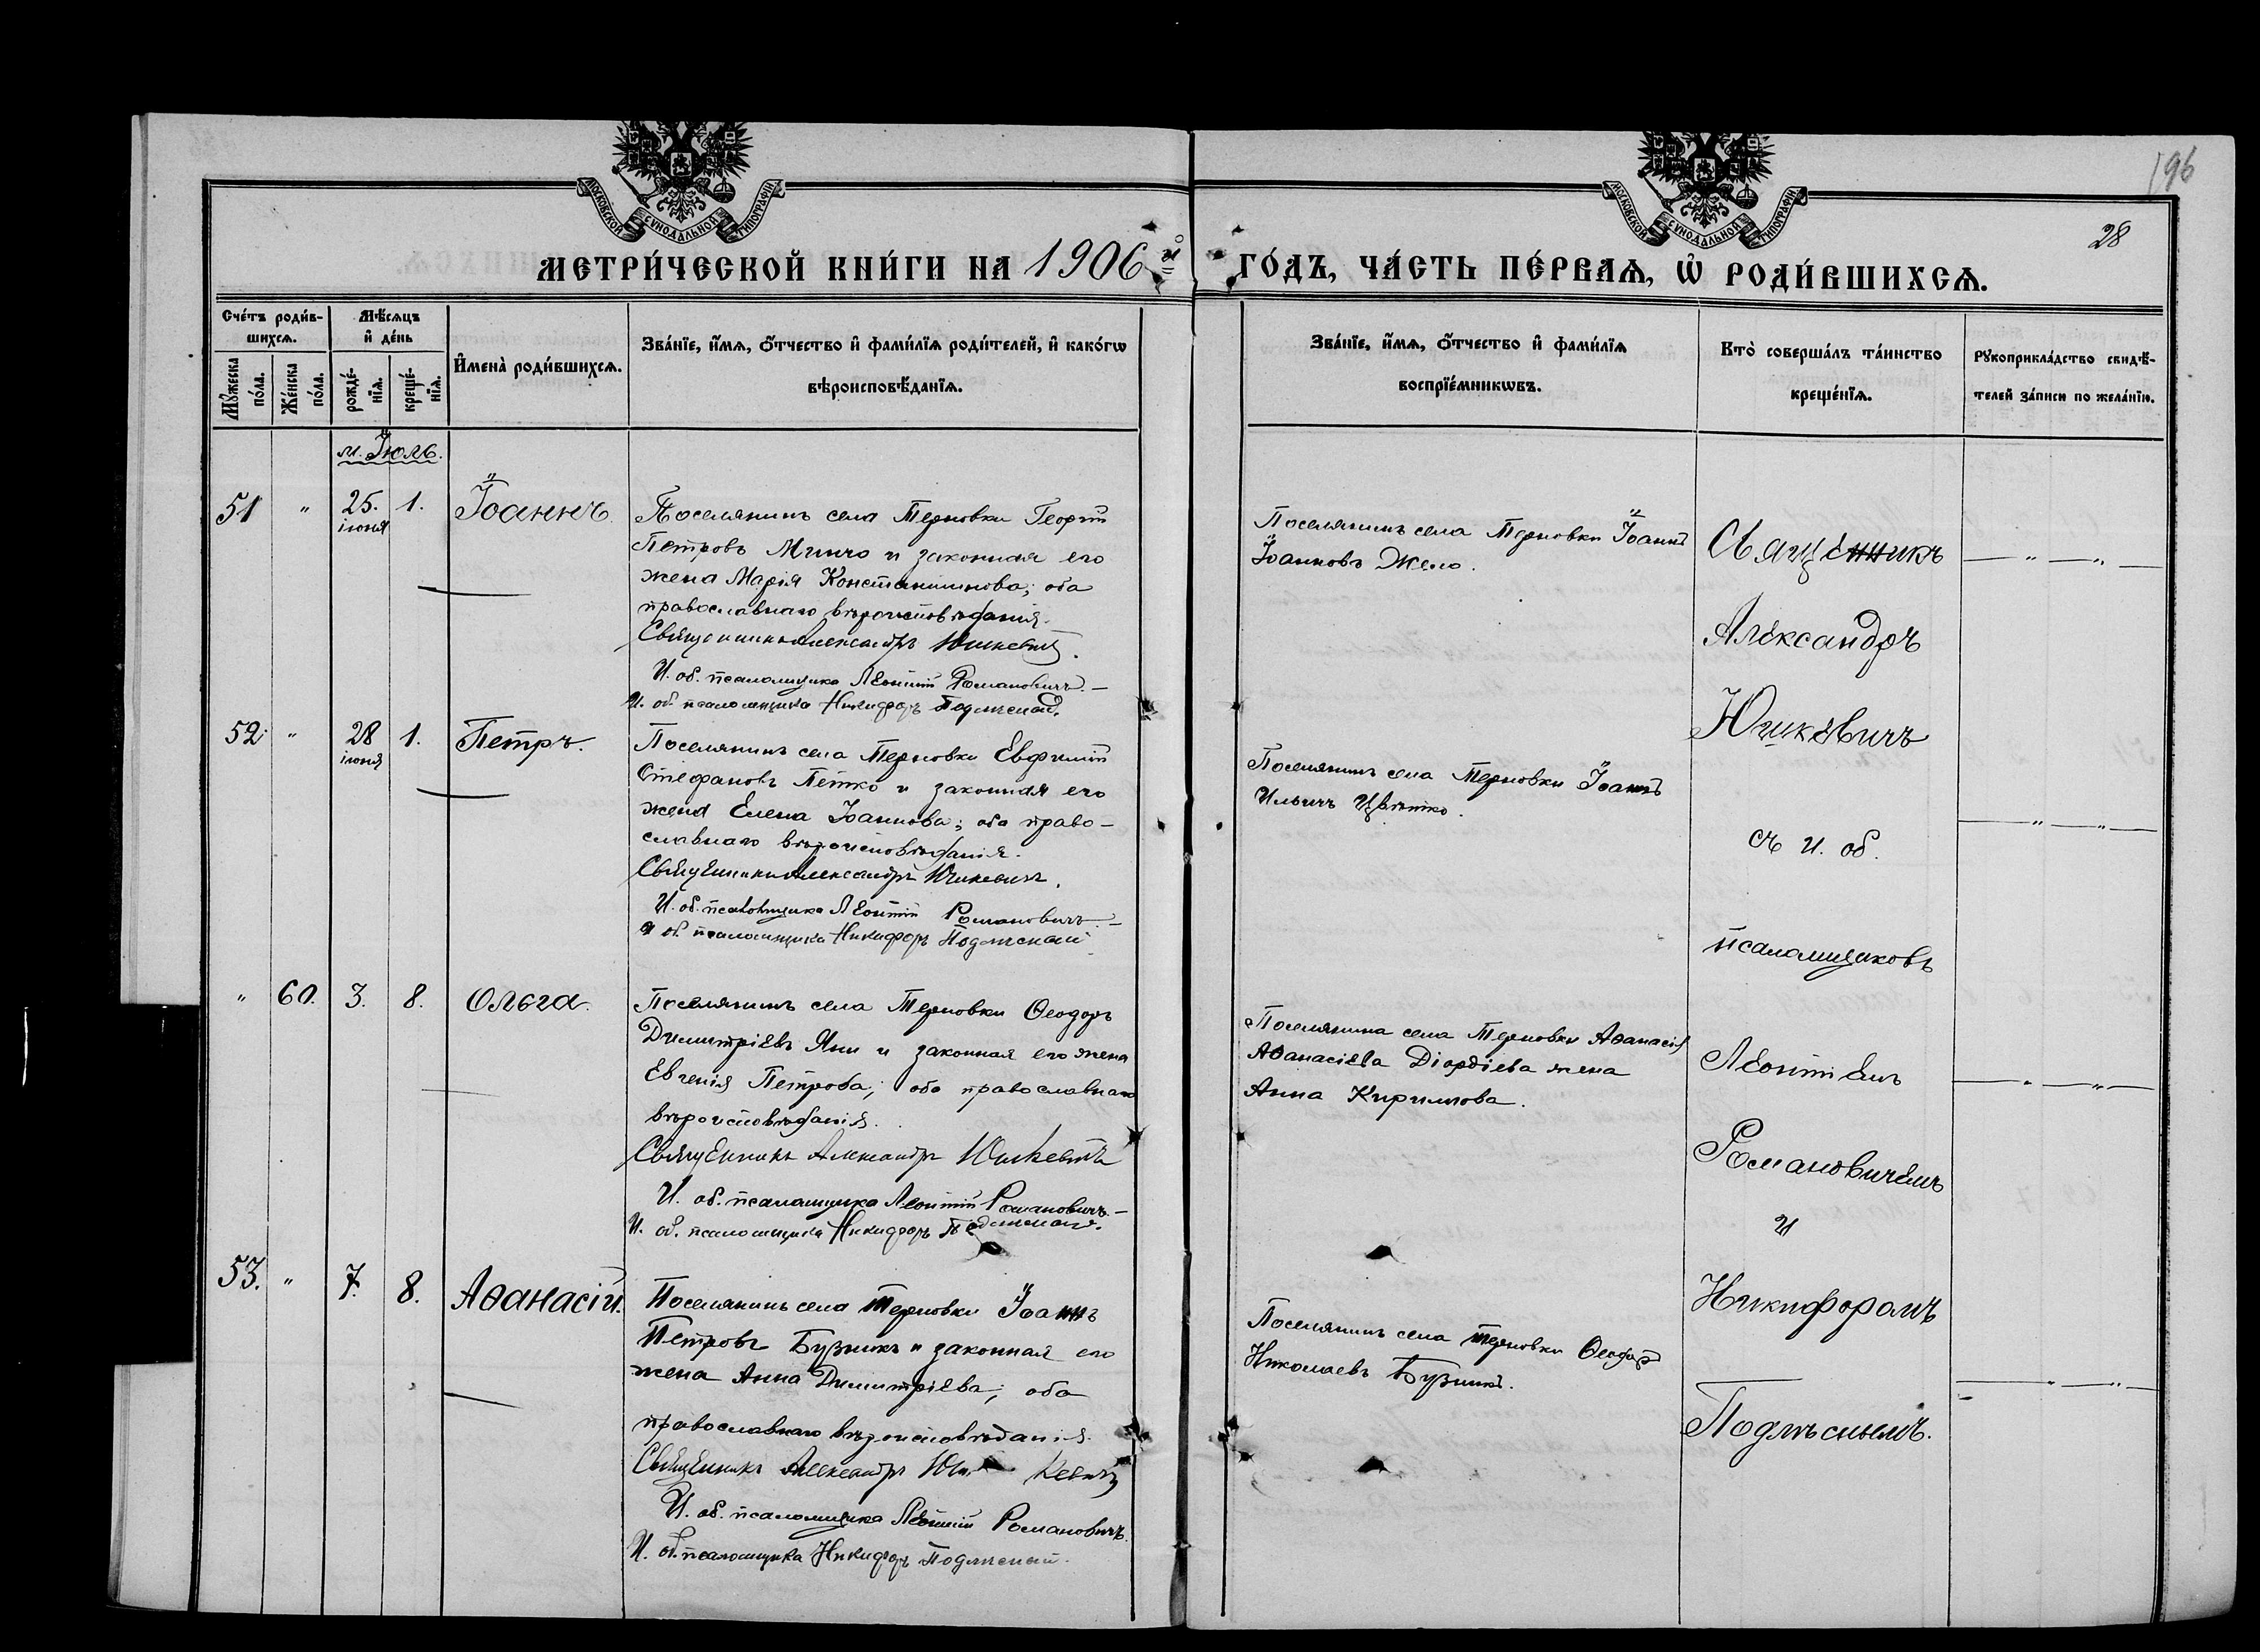 МОСКОВСКОЙ СѴНОДАЛЬНОЙ ТИПОГРАФІИ
МОСКОВСКОЙ СѴНОДАЛЬНОЙ ТИПОГРАФІИ
196
28
МЕТРИ́ЧЕСКОЙ КНИ́ГИ НА 1906 й ГО́ДЪ, ЧА́СТЬ ПЕ́РВАѦ, Ѡ РОДИ́ВШИХСѦ.
Сче́тъ роди́в-
шихсѧ.
Мꙋ́жеска по́ла.
Же́нска по́ла.
Мѣ́сѧцъ
и҆ де́нь
рожде́-нїѧ.
креще́-нїѧ.
И҆мена̀ роди́вшихсѧ.
Зва́нїе, и҆́мѧ, ѻ҆́тчество и҆ фами́лїѧ роди́телей, и҆ како́гѡ
вѣроисповѣ́данїѧ.
Зва́нїе, и҆́мѧ, ѻ҆́тчество и҆ фами́лїѧ
воспрїе́мникѡвъ.
Кто̀ соверша́лъ та́инство
креще́нїѧ.
Рꙋкоприкла́дство свидѣ́-
телей за́писи по жела́нїю.
м. Іюль.
51 " 25. іюня 1. Іоаннъ
Поселянинъ села Терновки Георгій
Петровъ Минчо и законная его
жена Марія Константинова; оба
православнаго вѣроисповѣданія.
Священникъ Александръ Юшкевичъ.
И. об. псаломщика Леонтій Романовичъ.
И. об. псаломщика Никифоръ Подлѣсный.
Поселянинъ села Терновки Іоаннъ
Іоанновъ Жело.
52 " 28 іюня 1. Петръ.
Поселянинъ села Терновки Евфимій
Стефановъ Петко и законная его
жена Елена Іоаннова; оба право-
славнаго вѣроисповѣданія.
Священникъ Александръ Юшкевичъ.
И. об. псаломщика Леонтій Романовичъ.
И об. псаломщика Никифоръ Подлѣсный
Поселянинъ села Терновки Іоаннъ
Ильичъ Цвѣтко.
" 60. 3. 8. Ольга.
Поселянинъ села Терновки Ѳеодоръ
Димитріевъ Яни и законная его жена
Евгенія Петрова; оба православнаго
вѣроисповѣданія.
Священникъ Александръ Юшкевичъ
И. об. псаломщика Леонтій Романовичъ.
И. об. псаломщика Никифоръ Подлѣсный.
Поселянина села Терновки Аѳанасія
Аѳанасіева Діордіева жена
Анна Кириллова.
53. " 7. 8. Аѳанасій.
Поселянинъ села Терновки Іоаннъ
Петровъ Бузникъ и законная его
жена Анна Димитріева; оба
православнаго вѣроисповѣданія.
Священникъ Александръ Юшкевичъ
И. об. псаломщика Леонтій Романовичъ.
И. об. псаломщика Никифоръ Подлѣсный.
Поселянинъ села Терновки Ѳеодоръ
Николаевъ Бузникъ.
Священникъ
Александръ
Юшкевичъ
съ и. об.
псаломщиковъ
Леонтіемъ
Романовичемъ
и
Никифоромъ
Подлѣснымъ.